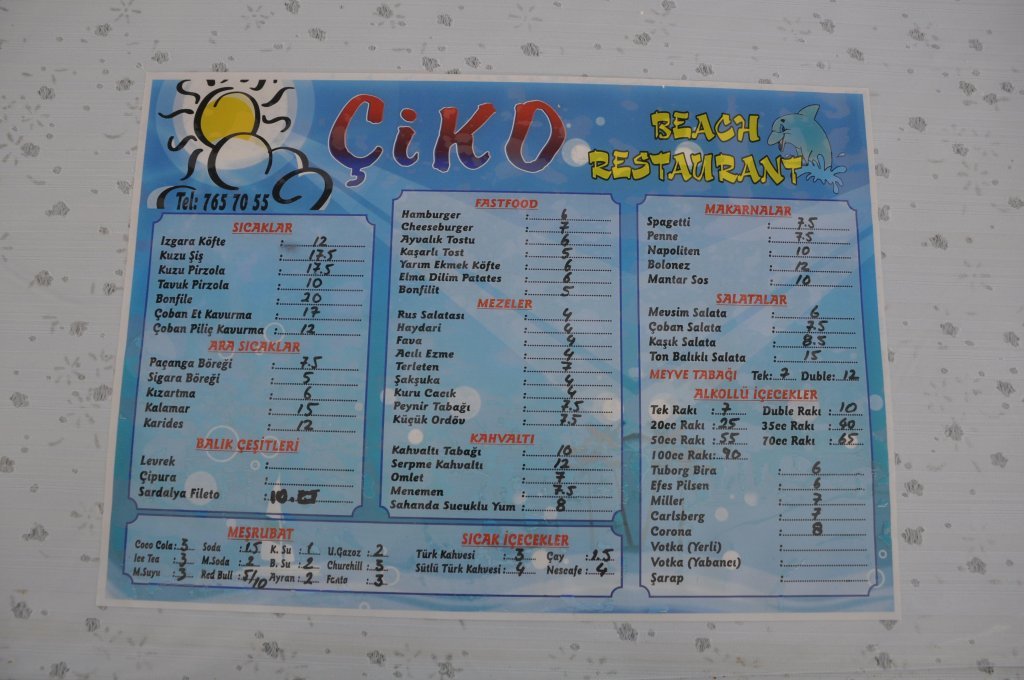 ÇiKO
BEACH
RESTAURANT
Tel: 765 70 55
SICAKLAR
Izgara Köfte : 12
Kuzu Şiş : 17.5
Kuzu Pirzola : 17.5
Tavuk Pirzola : 10
Bonfile : 20
Çoban Et Kavurma : 17
Çoban Piliç Kavurma : 12
ARA SICAKLAR
Paçanga Böreği : 7.5
Sigara Böreği : 5
Kızartma : 6
Kalamar : 15
Karides : 12
BALIK ÇEŞİTLERİ
Levrek :
Çipura :
Sardalya Fileto : 10.
FASTFOOD
Hamburger : 6
Cheeseburger : 7
Ayvalık Tostu : 6
Kaşarlı Tost : 5
Yarım Ekmek Köfte : 6
Elma Dilim Patates : 6
Bonfilit : 5
MEZELER
Rus Salatası : 4
Haydari : 4
Fava : 4
Acılı Ezme : 4
Terleten : 7
Şakşuka : 4
Kuru Cacık : 4
Peynir Tabağı : 7.5
Küçük Ordöv : 7.5
KAHVALTI
Kahvaltı Tabağı : 10
Serpme Kahvaltı : 12
Omlet : 7
Menemen : 7.5
Sahanda Sucuklu Yum : 8
MAKARNALAR
Spagetti : 7.5
Penne : 7.5
Napoliten : 10
Bolonez : 12
Mantar Sos : 10
SALATALAR
Mevsim Salata : 6
Çoban Salata : 7.5
Kaşık Salata : 8.5
Ton Balıklı Salata : 15
MEYVE TABAĞI Tek: 7 Duble: 12
ALKOLLÜ İÇECEKLER
Tek Rakı : 7 Duble Rakı : 10
20cc Rakı : 25 35cc Rakı : 40
50cc Rakı : 55 70cc Rakı : 65
100cc Rakı: 90
Tuborg Bira : 6
Efes Pilsen : 6
Miller : 7
Carlsberg : 7
Corona : 8
Votka (Yerli) :
Votka (Yabancı) :
Şarap :
MEŞRUBAT
Coco Cola: 3 Soda : 1.5 K. Su : 1 U.Gazoz : 2
Ice Tea : 3 M.Soda : 2 B. Su : 2 Churchill : 3
M.Suyu : 3 Red Bull : 5/10 Ayran : 2 Fanta : 3
SICAK İÇECEKLER
Türk Kahvesi : 3 Çay : 1.5
Sütlü Türk Kahvesi : 4 Nescafe : 4